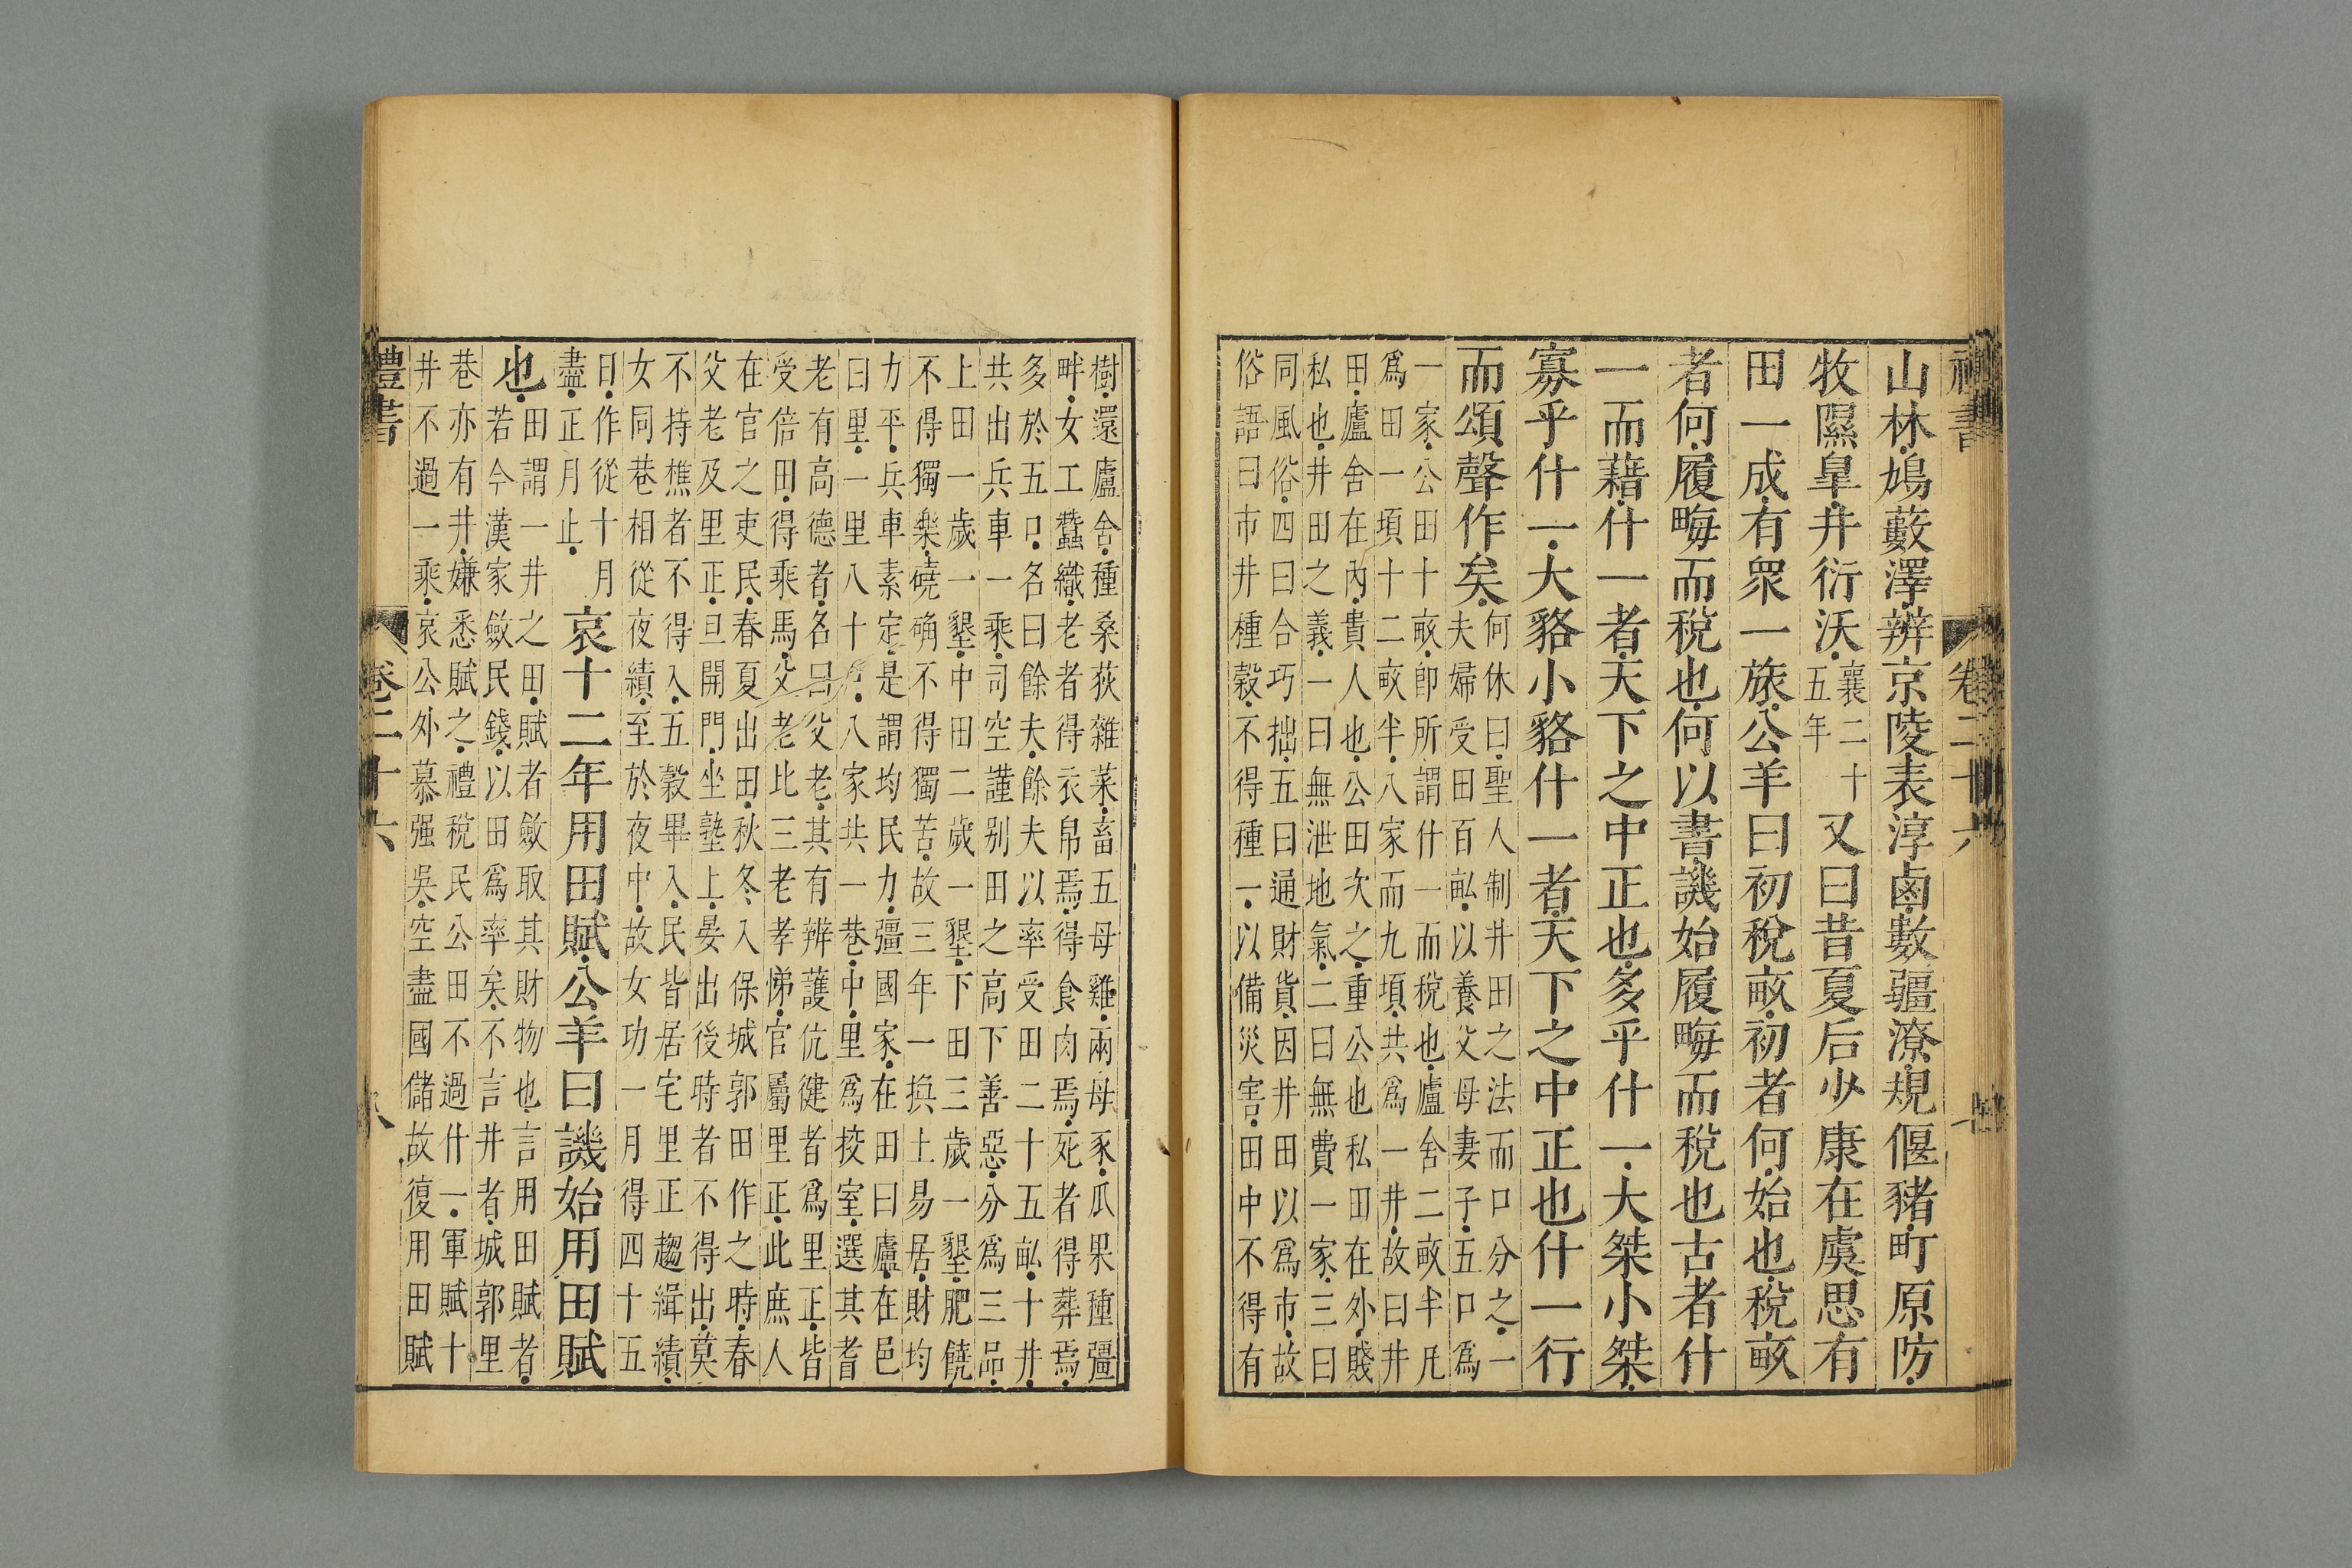 山林鳩藪澤辨京陵表淳鹵數疆潦規偃豬町原防
牧隰皐井衍沃襄二十五年又曰昔夏后少康在虞思有
田一成有衆一旅公羊曰初稅畝初者何始也稅畝
者何履畮而稅也何以書譏始履畮而稅也古者什
一而藉什一者天下之中正也多乎什一大桀小桀
寡乎什一大貉小貉什一者天下之中正也什一行
而頌聲作矣何休曰聖人制井田之法而口分之一
夫婦受田百畒以養父母妻子五口爲
一家公田十畝卽所謂什一而稅也廬舍二畝半凡
爲田一頃十二畝半八家而九頃共爲一井故曰井
田廬舍在內貴人也公田次之重公也私田在外賤
私也井田之義一曰無泄地氣二曰無費一家三曰
同風俗四曰合巧拙五曰通財貨因井田以爲市故
俗語曰市井種穀不得種一以備災害田中不得有
樹還廬舍種桑荻雜菜畜五母雞兩母豕瓜果種疆
畔女工蠶織老者得衣帛焉得食肉焉死者得葬焉
多於五口名曰餘夫餘夫以率受田二十五畒十井
共出兵車一乘司空謹別田之高下善惡分爲三品
上田一歲一墾中田二歲一墾下田三歲一墾肥饒
不得獨樂磽确不得獨苦故三年一換土易居財均
力平兵車素定是謂均民力彊國家在田曰廬在邑
曰里一里八十戶八家共一巷中里爲挍室選其耆
老有高德者名曰父老其有辨護伉健者爲里正皆
受倍田得乘馬父老比三老孝悌官屬里正此庶人
在官之吏民春夏出田秋冬入保城郭田作之時春
父老及里正旦開門坐塾上晏出後時者不得出莫
不持樵者不得入五穀畢入民皆居宅里正趨緝績
女同巷相從夜績至於夜中故女功一月得四十五
日作從十月
盡正月止哀十二年用田賦公羊曰譏始用田賦
也田謂一井之田賦者斂取其財物也言用田賦者
若今漢家斂民錢以田爲率矣不言井者城郭里
巷亦有井嫌悉賦之禮稅民公田不過什一軍賦十
井不過一乘哀公外慕强吳空盡國儲故復用田賦
禮書 卷二十六